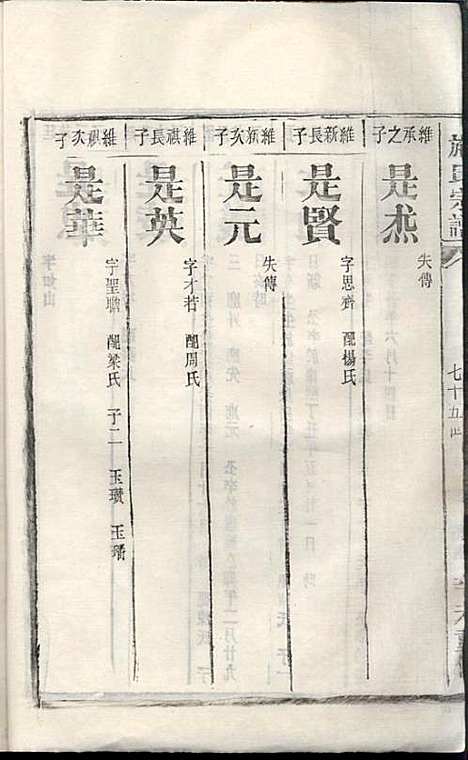 施氏宗譜
七十五
維承之子
是焘
失傳
維新長子
是賢
字思齊 配楊氏
維新次子
是元
失傳
維祺長子
是英
字才若 配周氏
維祺次子
是華
字聖瞻 配梁氏 子二 玉瓚 玉璠